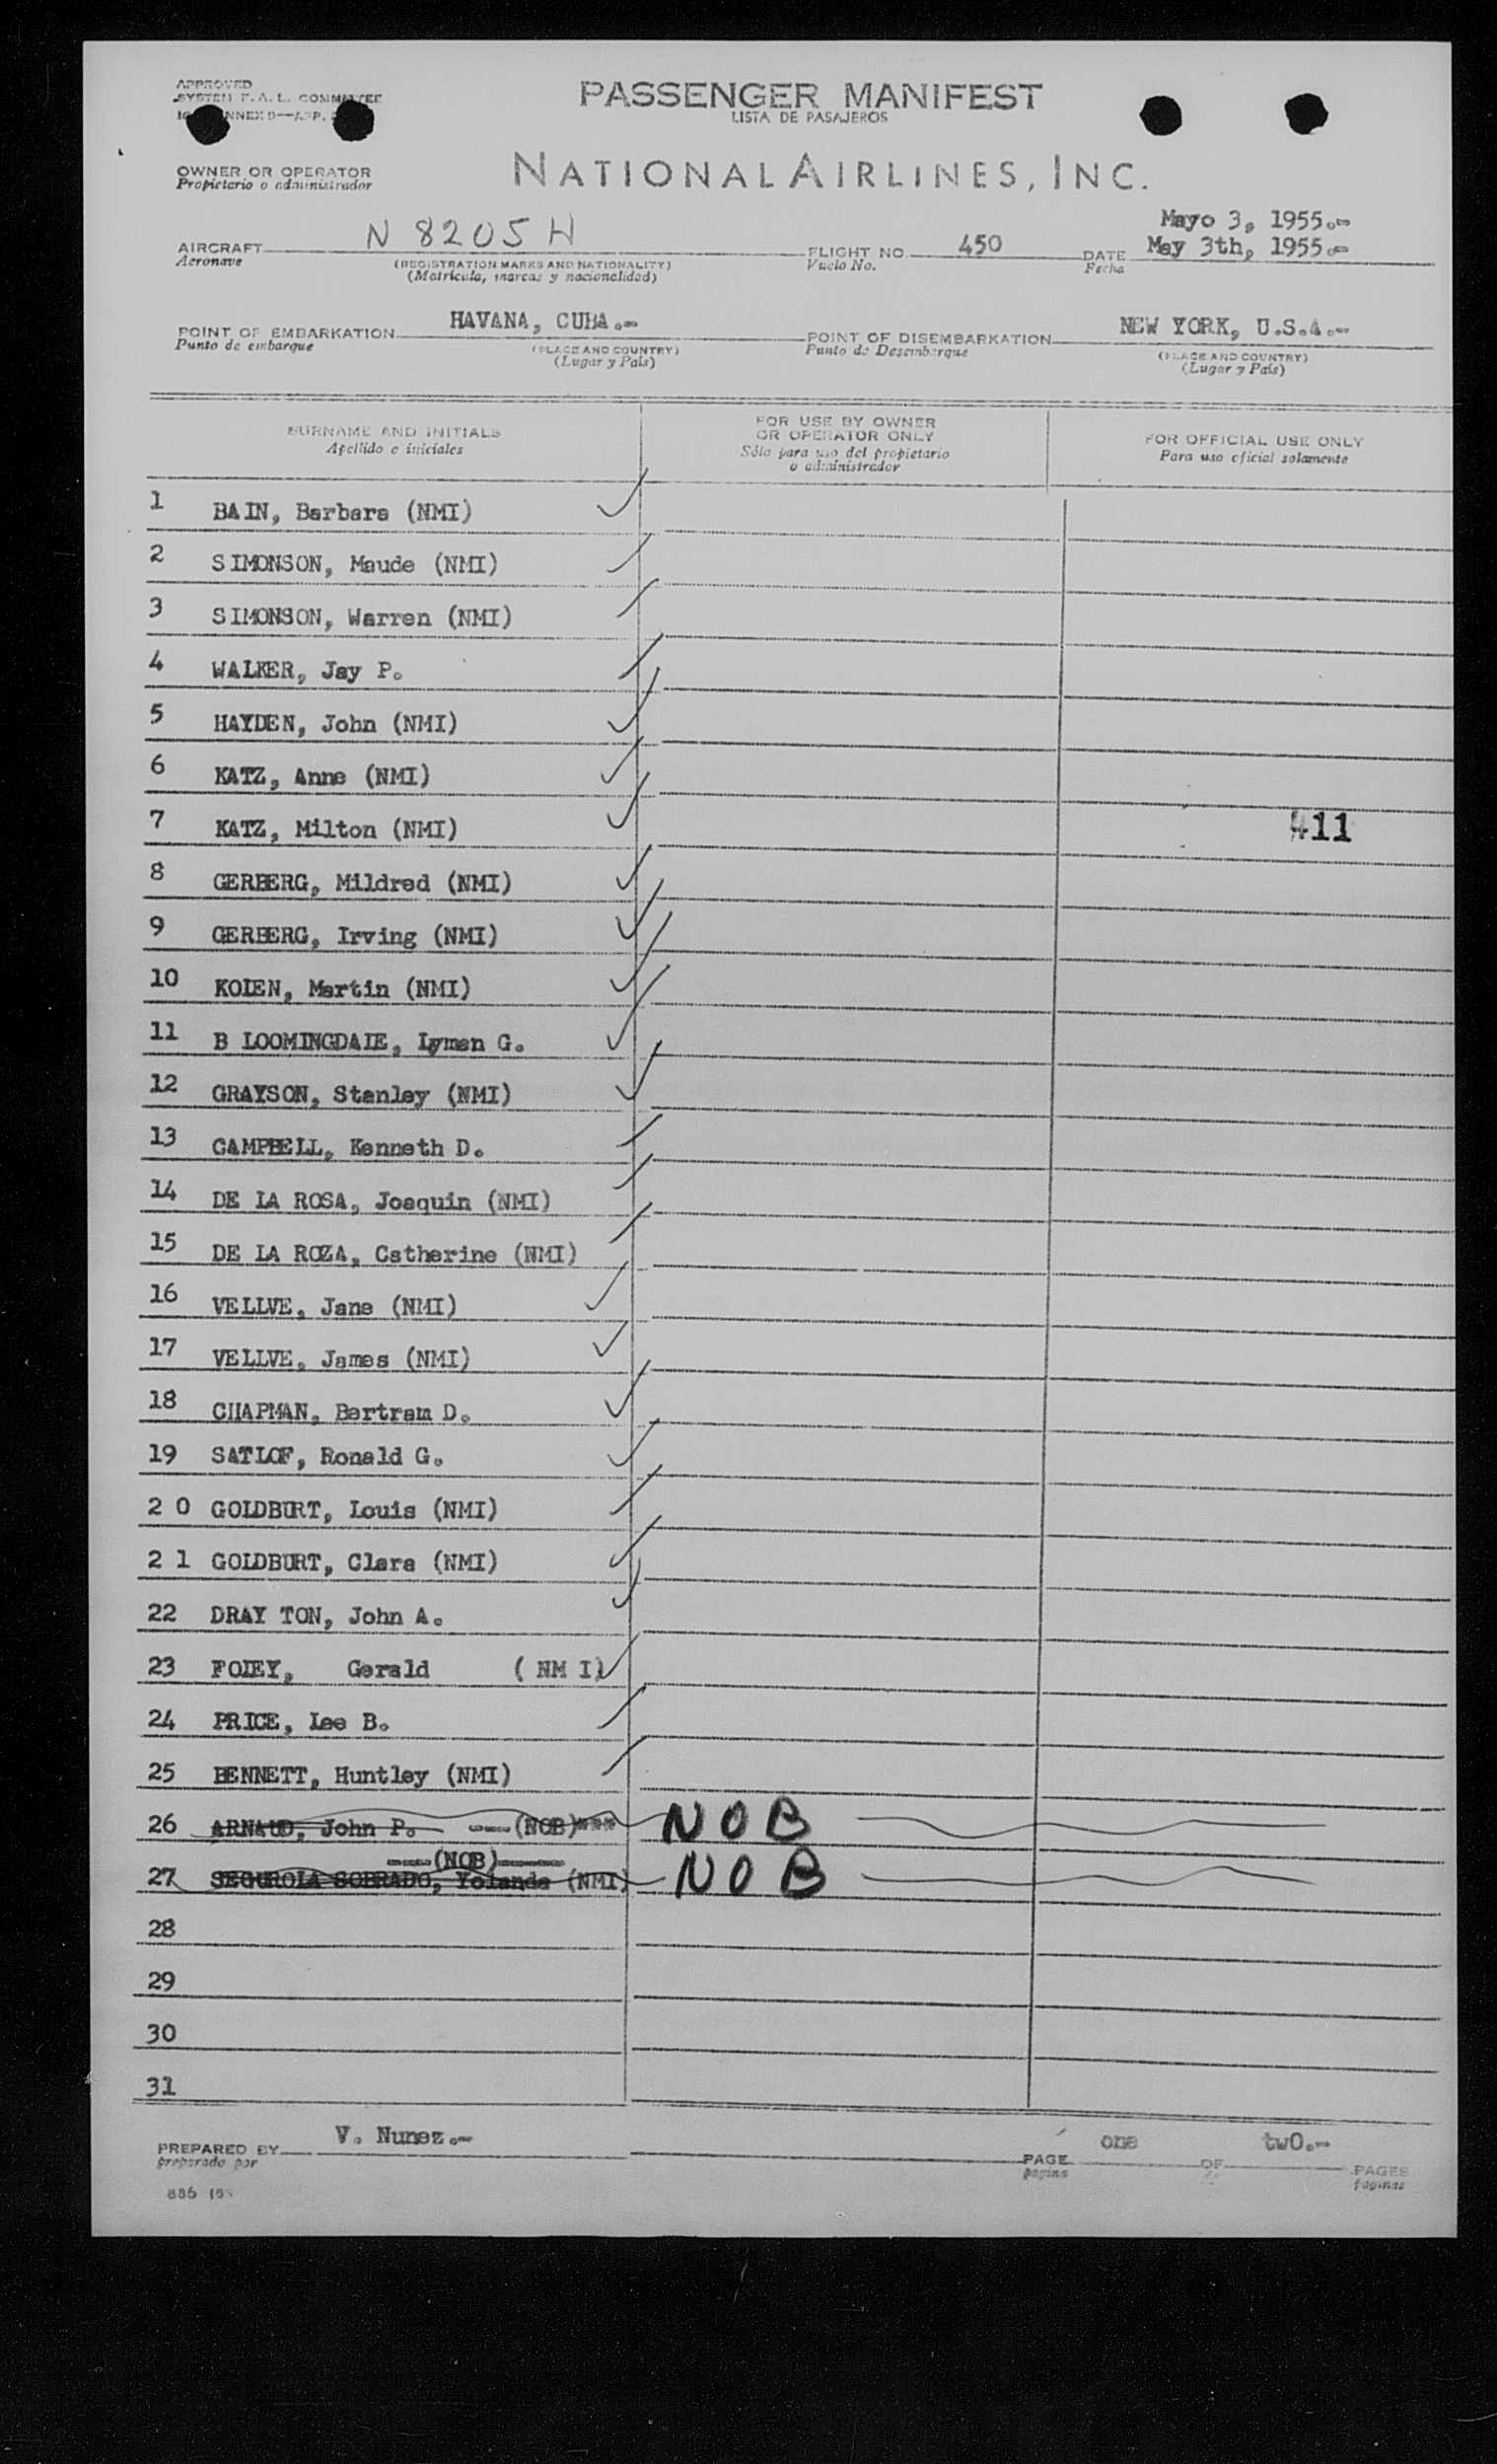 APPROVED
SYSTEM F.A.L. COMMITTEE
ANNEX 9—APP.
PASSENGER MANIFEST
LISTA DE PASAJEROS
OWNER OR OPERATOR
Propietario o administrador
NATIONAL AIRLINES, INC.
Mayo 3, 1955.-
AIRCRAFT N 8205 H FLIGHT NO. 450 DATE May 3th, 1955.-
Aeronave (REGISTRATION MARKS AND NATIONALITY) Vuelo No. Fecha
(Matrícula, marcas y nacionalidad)
POINT OF EMBARKATION HAVANA, CUBA.- POINT OF DISEMBARKATION NEW YORK, U.S.A.-
Punto de embarque (PLACE AND COUNTRY) Punto de Desembarque (PLACE AND COUNTRY)
(Lugar y País) (Lugar y País)
SURNAME AND INITIALS
Apellido e iniciales
FOR USE BY OWNER
OR OPERATOR ONLY
Sólo para uso del propietario
o administrador
FOR OFFICIAL USE ONLY
Para uso oficial solamente
1 BAIN, Barbara (NMI)
2 SIMONSON, Maude (NMI)
3 SIMONSON, Warren (NMI)
4 WALKER, Jay P.
5 HAYDEN, John (NMI)
6 KATZ, Anne (NMI)
7 KATZ, Milton (NMI) 411
8 GERBERG, Mildred (NMI)
9 GERBERG, Irving (NMI)
10 KOLEN, Martin (NMI)
11 B LOOMINGDALE, Lyman G.
12 GRAYSON, Stanley (NMI)
13 CAMPBELL, Kenneth D.
14 DE LA ROSA, Joaquin (NMI)
15 DE LA ROZA, Catherine (NMI)
16 VELLVE, Jane (NMI)
17 VELLVE, James (NMI)
18 CHAPMAN, Bertram D.
19 SATLOF, Ronald G.
2 0 GOLDBURT, Louis (NMI)
2 1 GOLDBURT, Clara (NMI)
22 DRAY TON, John A.
23 FOLEY, Gerald ( NM I)
24 PRICE, Lee B.
25 BENNETT, Huntley (NMI)
26 ARNAUD, John P. ---(NOB)*** NOB
----(NOB)------
27 SEGUROLA SOBRADO, Yolanda (NMI) NOB
28
29
30
31
PREPARED BY V. Nunez.- PAGE one OF two.- PAGES
preparado por página de páginas